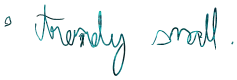 ° trendy small.